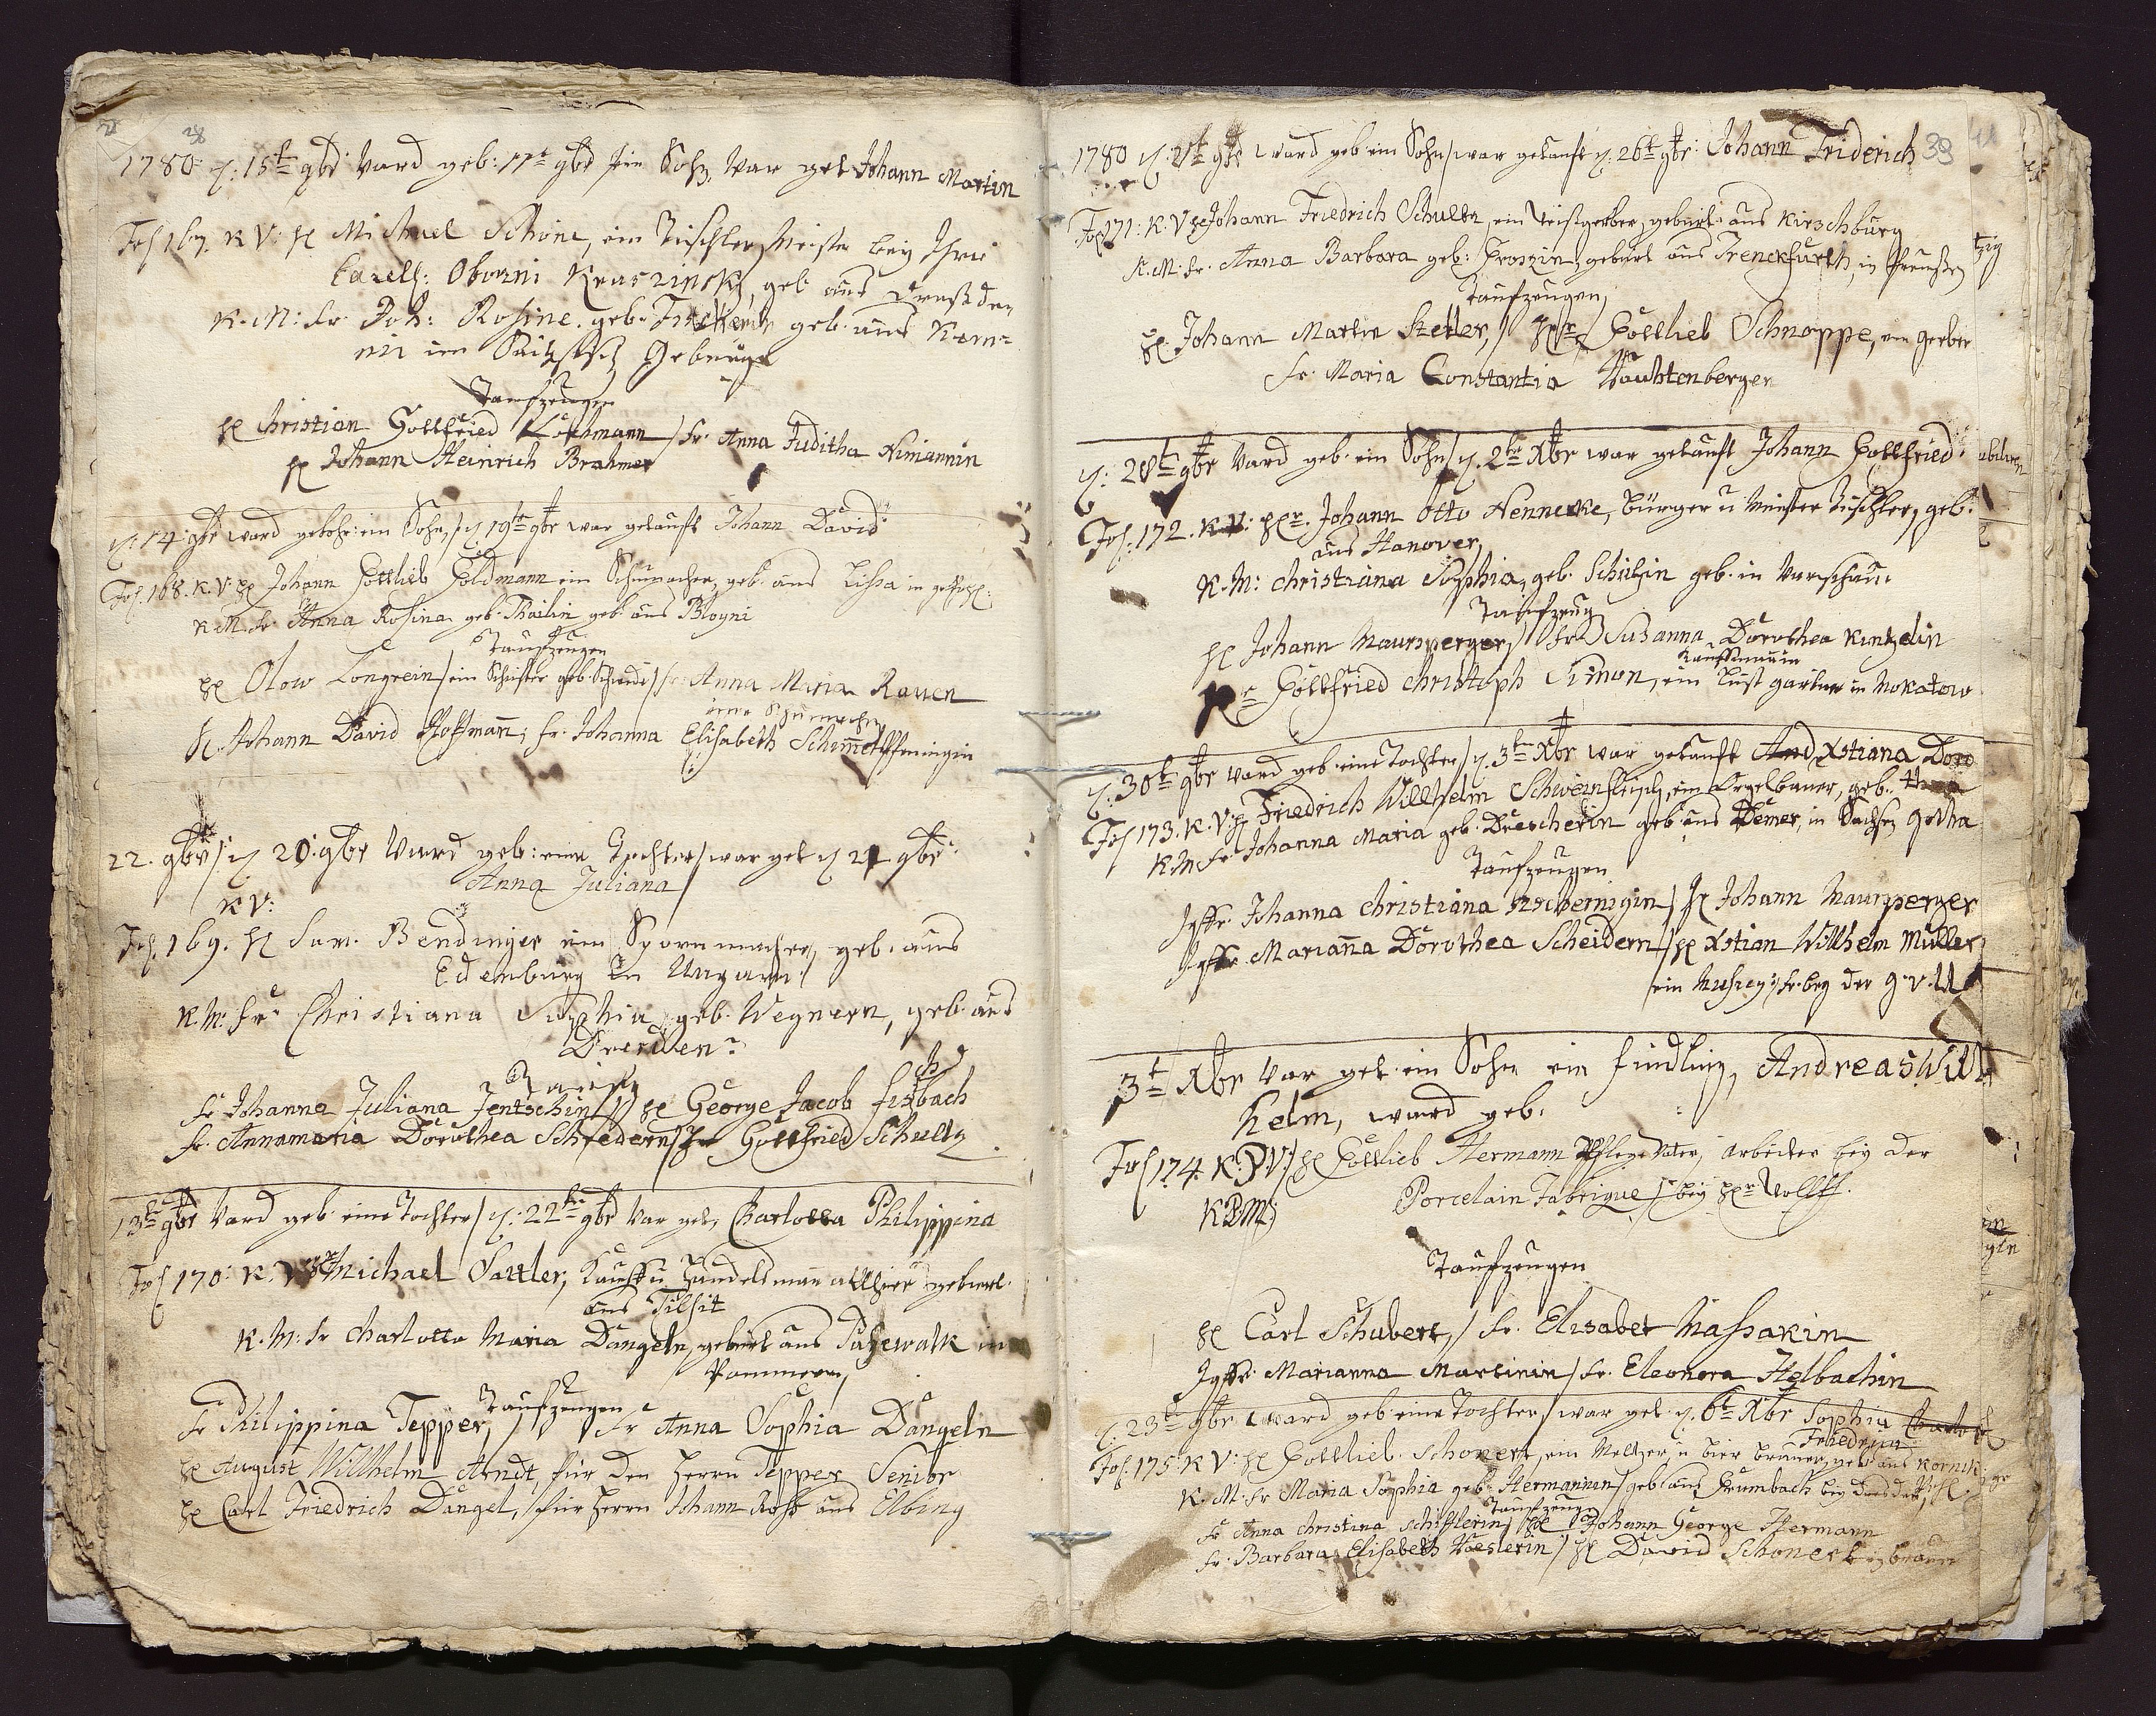 28
1780. d: 15t 9br Vard geb: 17t 9br ein Sohn, war get Johann Martin
Fol 167. K V: H Michael Schöne, ein Tischler Meister bey Ihre
Excell: Oborni Kraszinski, geb aus Dresden
K. M: Fr. Joh: Rosine geb: geb. aus
im Gebürge
Taufzeugen
H Christian Gottfried Lochmann / Fr. Anna Juditha Nimannin
H Johann Heinrich Brahmer
d. 14: 9br ward gebohr: ein Sohn, / d 19te 9br war getauft Johann David
Fol. 168. K. V: H Johann Gottlieb Goldmann ein Schumacher, geb. aus Lissa in
K M. Fr. Anna Rosina geb. Thailin geb. aus Bloyni
Taufzeugen
H Olow Longrein / ein Schuster / Fr Anna Maria Rauen
H. Johann David Hoffmañ; Fr. Johanna Elisabeth Schimmelpfeningin
22. 9br / d 20: 9br Vard geb: eine Tochter / war get d 21 9br
Anna Juliana /
K V:
Fol. 169. H Sam. Bendinger ein Spornmacher, geb. aus
Edemburg in Ungarn /
K. M: Fr. Christiana Sophia, geb. Wegnern, geb. aus
Dresden
Taufz
Fr Johanna Juliana Jentschin / H George Jacob Fisbach
Fr. Annamaria Dorothea Schredern / Hr Gottfried Schultz
13te 9br Vard geb eine Tochter / d: 22te 9br Var get, Charlotta Philippina
Fol 170: K. V H Michael Sattler, Kauf u Handelsman allhier gebürt.
aus Tilsit
K. M: Fr Charlotta Maria Dangeln, gebürt aus Pasewalk in
Pommern,
Taufzeugen
Fr Philippina Tepper, / Fr Anna Sophia Dangeln
H August Willhelm Arndt, für den Herrn Tepper Senior
H Carl Friedrich Dangel, / für Herrn Johann Rohs aus Elbing
39
1780 d: 9br ward geb ein Sohn / war getauft d. 26t 9br: Johann Friderich
Fol 171: K. V H Johann Friedrich Schultz, ein Weisgerber, gebürt: aus Kirschburg
K. M: Fr. Anna Barbara geb: Groszin, gebürt aus Trenckfurth, in Preußen
Taufzeugen
H. Johann Martin Stetler, / Hr. Gottlieb Schnoppe, ein Gerber
Fr. Maria Constantia Wachtenberger
d: 28t 9br Vard geb. ein Sohn / d. 2te Xbr war getauft Johann Gottfried
Fol: 172. K. V: Hr. Johann Otto Hennecke, Bürger u Meister Tischler, geb.
aus Hanover,
K. M: Christiana Sophia, geb. Schülzin geb. in Varschau
Taufzeug
H Johann Maursperger / Fr Susanna Dorothea Kintzelin
Kauffmanin
Hr Gottfried Christoph Simon, ein Lust gärtner in Mokatow
d: 30t 9br ward geb. eine Tochter / d. 3te Xbr war getauft Xstiana Doro
Fol 173. K. V: H Friedrich Willhelm Schweinfleisch, ein Orgelbauer, geb. thea
K. M Fr Johanna Maria geb. Drescherin geb aus in Sachsen Gotha
Taufzeugen
Jgfr. Johanna Christiana / H Johann Maursperger
Jgfr. Mariana Dorothea Scheidern / H Xstian Willhelm Müller
ein bey der
3t Xbr Var get. ein Sohn ein Findling, Andreas Will
helm, ward geb.
Fol 174. K. P V: / H Gottlieb Hermann Pflege Vater, arbeiter bey der
K P M: Porcelain Fabrique / bey Hr Wolff.
Taufzeugen
H Carl Schubert, / Fr. Elisabet Nassakin
Jgfr. Marianna Martinin / Fr. Eleonora Helbachin
d. 23t 9br Ward geb eine Tochter / war get d. 6t Xbr Sophia
Friedrica
Fol: 175: K V: H Gottlieb Schonert, ein Meltzer, u bier brauer, geb aus
K. M: Fr Maria Sophia geb. Hermannin / geb aus Grumbach bey Dresden
Taufzeugen
Fr Anna Christina Schifflerin / H Johann George Hermann
Fr. Barbara Elisabeth / H David Schonert